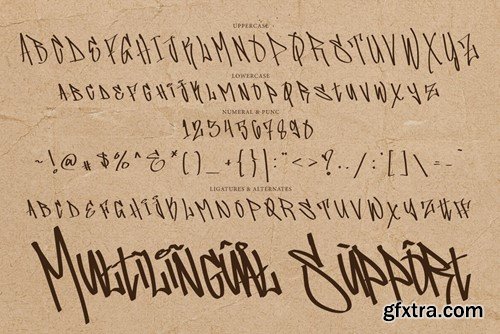 UPPERCASE
ABCDEFGHIJKLMNOPQRSTUVWXYZ
LOWERCASE
ABCDEFGHIJKLMNOPQRSTUVWXYZ
NUMERAL & PUNC
1234567890
~!@#$%^&*()_+{}|:"<>?../;:'[]\=-`
LIGATURES & ALTERNATES
ABCDEFGHIJKLMNOPQRSTUVWXYZ
Multilingual Support
gfxtra.com